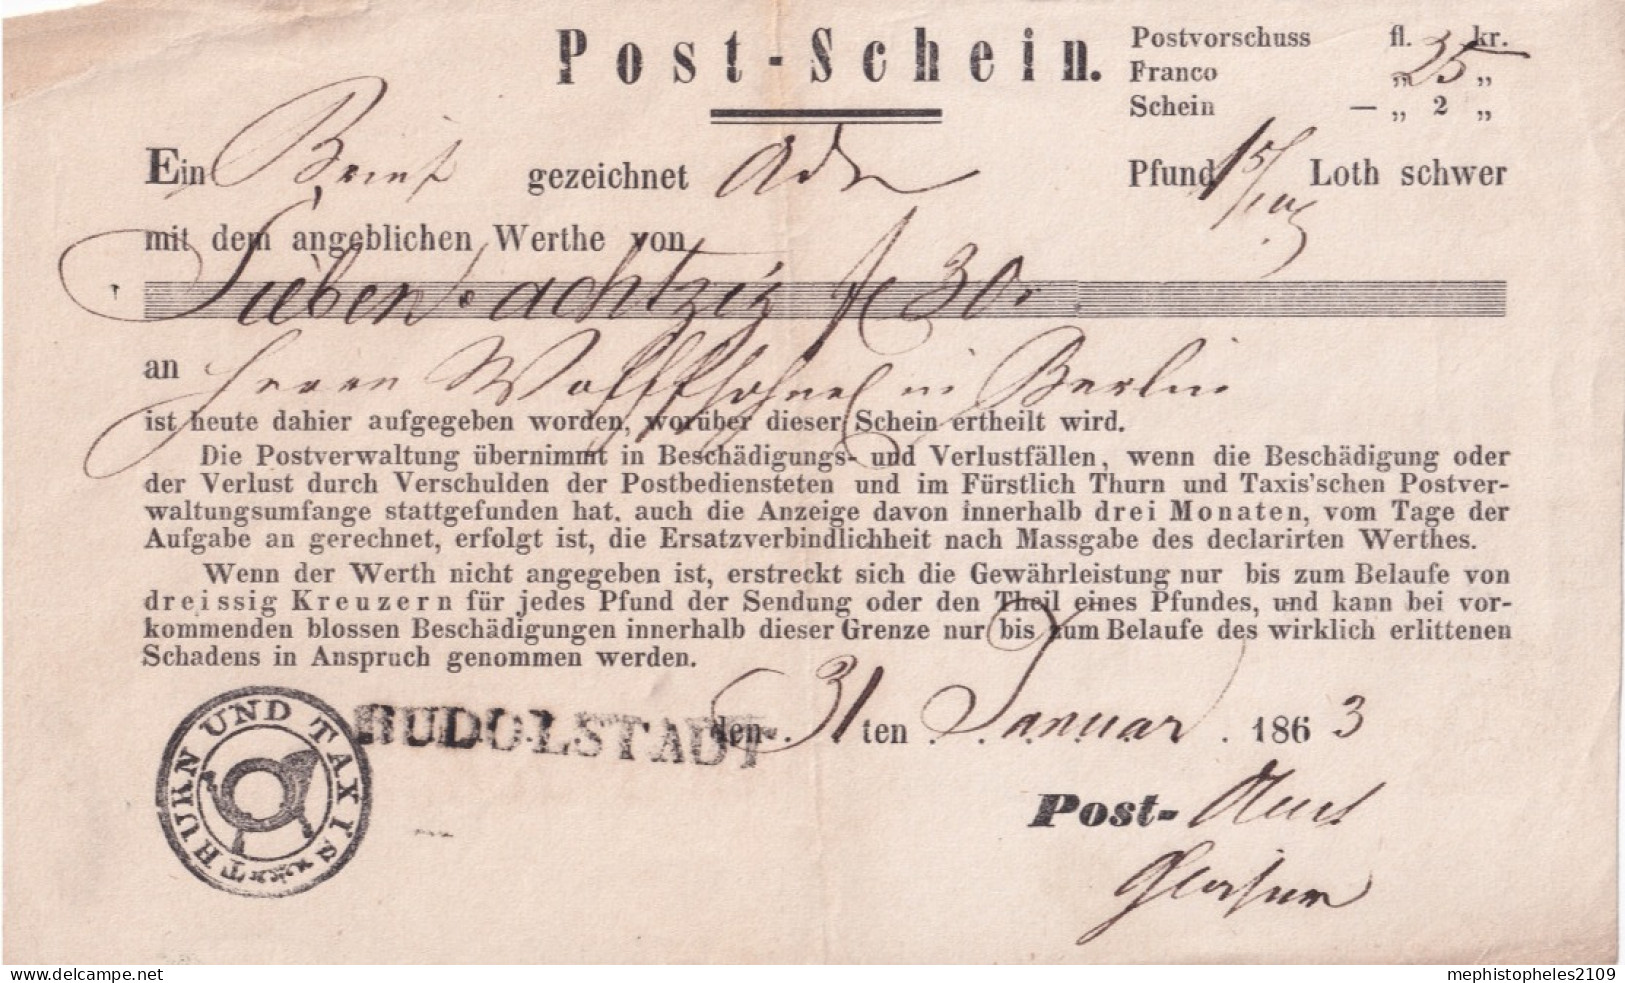 Post-Schein.
Postvorschuss fl. kr.
Franco „ 25 „
Schein — „ 2 „
Ein Brief gezeichnet Adr Pfund Loth schwer
mit dem angeblichen Werthe von
Sieben achtzig f 30
an Herrn in Berlin
ist heute dahier aufgegeben worden, worüber dieser Schein ertheilt wird.
Die Postverwaltung übernimmt in Beschädigungs- und Verlustfällen, wenn die Beschädigung oder
der Verlust durch Verschulden der Postbediensteten und im Fürstlich Thurn und Taxis'schen Postver-
waltungsumfange stattgefunden hat, auch die Anzeige davon innerhalb drei Monaten, vom Tage der
Aufgabe an gerechnet, erfolgt ist, die Ersatzverbindlichheit nach Massgabe des declarirten Werthes.
Wenn der Werth nicht angegeben ist, erstreckt sich die Gewährleistung nur bis zum Belaufe von
dreissig Kreuzern für jedes Pfund der Sendung oder den Theil eines Pfundes, und kann bei vor-
kommenden blossen Beschädigungen innerhalb dieser Grenze nur bis zum Belaufe des wirklich erlittenen
Schadens in Anspruch genommen werden.
RUDOLSTADT den 31 ten Januar 1863
THURN UND TAXIS
Post-
www.delcampe.net
mephistopheles2109